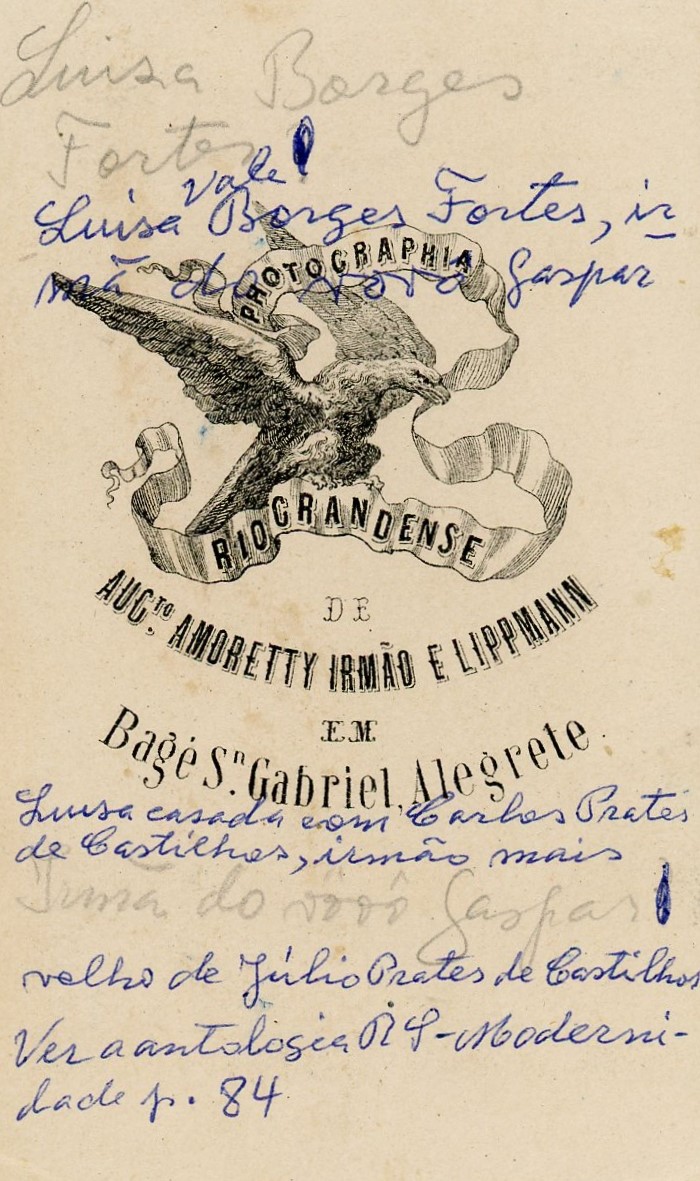 Luisa Borges
Fortes
Vale!
Luisa Borges Fortes, ir
mã do vovô Gaspar
PHOTOGRAPHIA
RIOGRANDENSE
DE
AUG.TO AMORETTY IRMÃO E LIPPMANN
EM
Bagé Sn. Gabriel, Alegrete.
Luisa casada com Carlos Prates
de Castilhos, irmão mais
Irmã do vovô Gaspar!
velho de Júlio Prates de Castilhos
Ver a antologia RS-Moderni-
dade p. 84